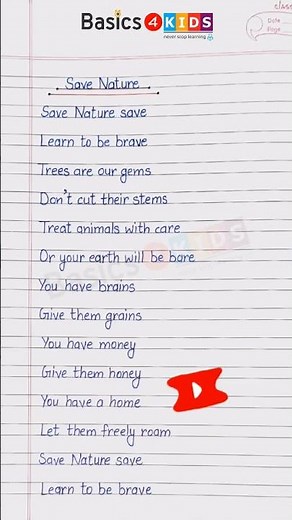 Basics 4 KIDS
never stop learning
class
Date
Page
Save Nature
Save Nature save
Learn to be brave
Trees are our gems
Don't cut their stems
Treat animals with care
Or your earth will be bare
Basics 4 KIDS
You have brains
Give them grains
You have money
Give them honey
You have a home
Let them freely roam
Save Nature save
Learn to be brave